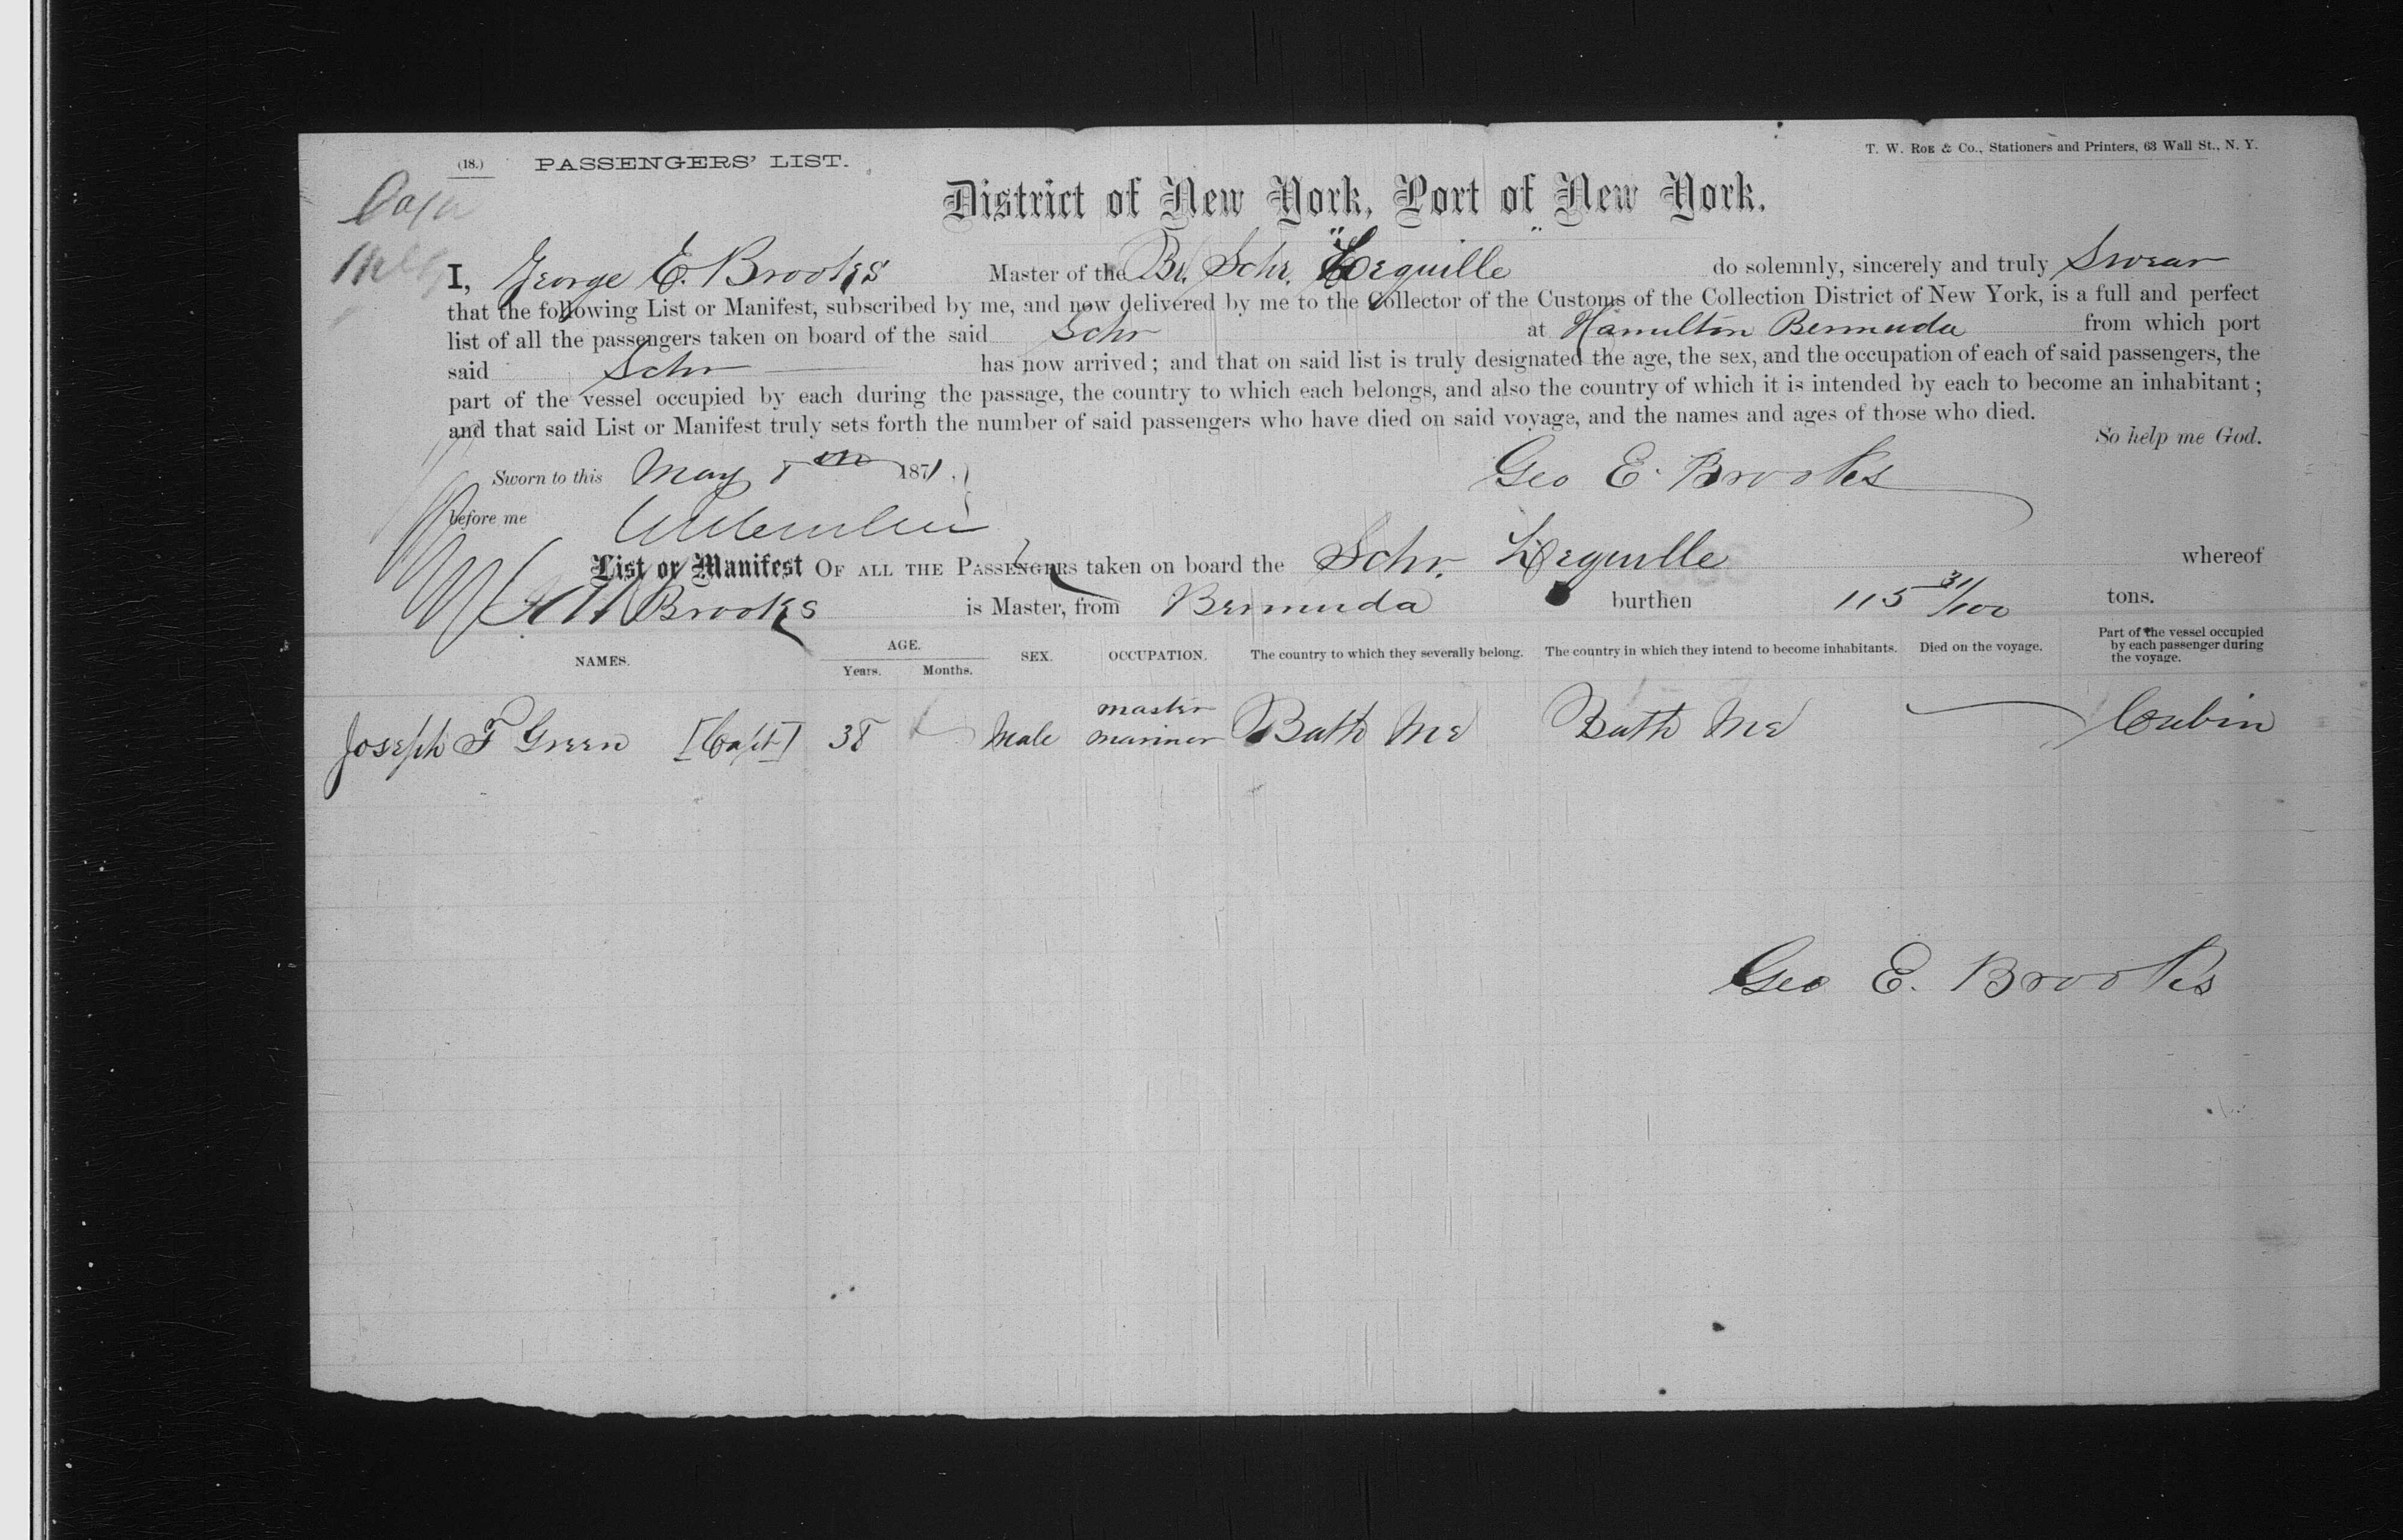 (18.) PASSENGERS' LIST.
T. W. Roe & Co., Stationers and Printers, 63 Wall St., N. Y.
District of New York, Port of New York.
I, George E. Brooks Master of the Br. Schr. "Lequille" do solemnly, sincerely and truly Swear
that the following List or Manifest, subscribed by me, and now delivered by me to the Collector of the Customs of the Collection District of New York, is a full and perfect
list of all the passengers taken on board of the said Schr at Hamilton Bermuda from which port
said Schr has now arrived; and that on said list is truly designated the age, the sex, and the occupation of each of said passengers, the
part of the vessel occupied by each during the passage, the country to which each belongs, and also the country of which it is intended by each to become an inhabitant;
and that said List or Manifest truly sets forth the number of said passengers who have died on said voyage, and the names and ages of those who died.
So help me God.
Sworn to this May 8th 1871.
Geo E. Brooks
before me
List or Manifest OF ALL THE PASSENGERS taken on board the Schr. Lequille whereof
Brooks is Master, from Bermuda burthen 115 31/100 tons.
NAMES. AGE. Years. Months. SEX. OCCUPATION. The country to which they severally belong. The country in which they intend to become inhabitants. Died on the voyage. Part of the vessel occupied by each passenger during the voyage.
Joseph F Green [Capt] 38 Male master mariner Bath Me Bath Me Cabin
Geo E. Brooks